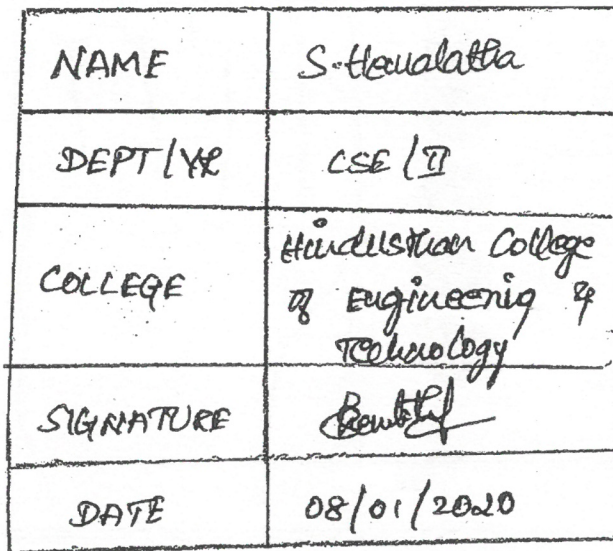 NAME S. Hemalatha
DEPT/YR CSE/II
COLLEGE Hindusthan College
of Engineering &
Technology
SIGNATURE
DATE 08/01/2020